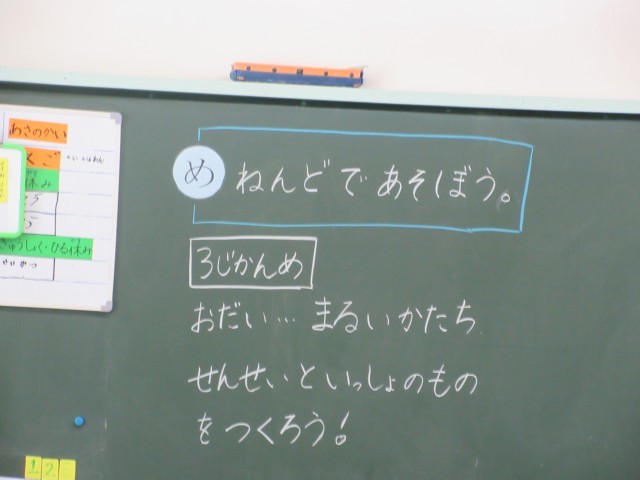 あさのかい
め ねんどであそぼう。
3じかんめ
おだい…まるいかたち
せんせいといっしょのもの
をつくろう!
きゅうしょく・ひる休み
12